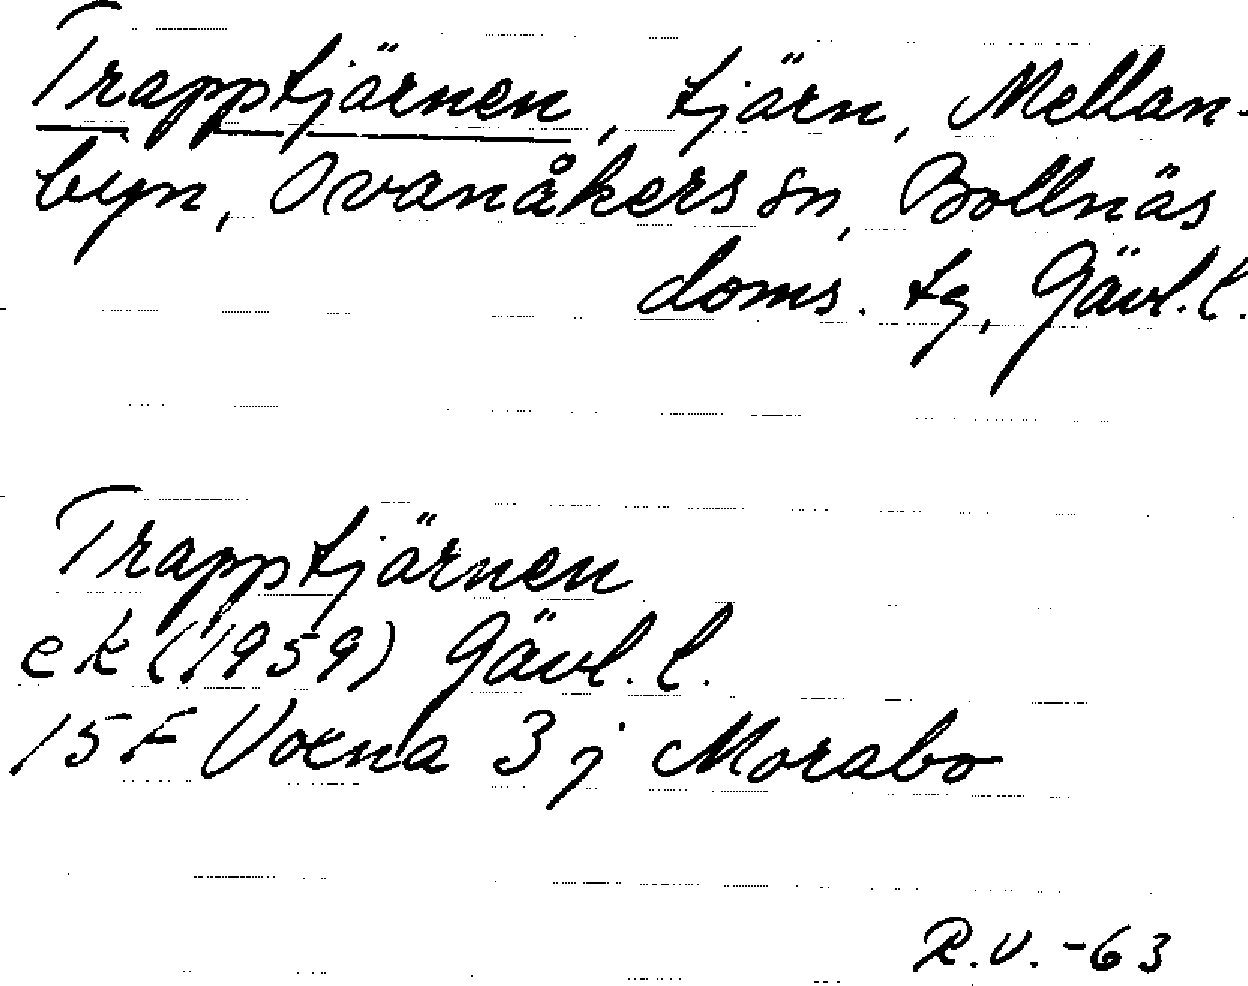 Trapptjärnen, tjärn, Mellan-
byn, Ovanåkers sn, Bollnäs
doms. tg, Gävl. l.
Trapptjärnen
ek (1959) Gävl. l.
15F Voxna 3 j Morabo
R.V. -63